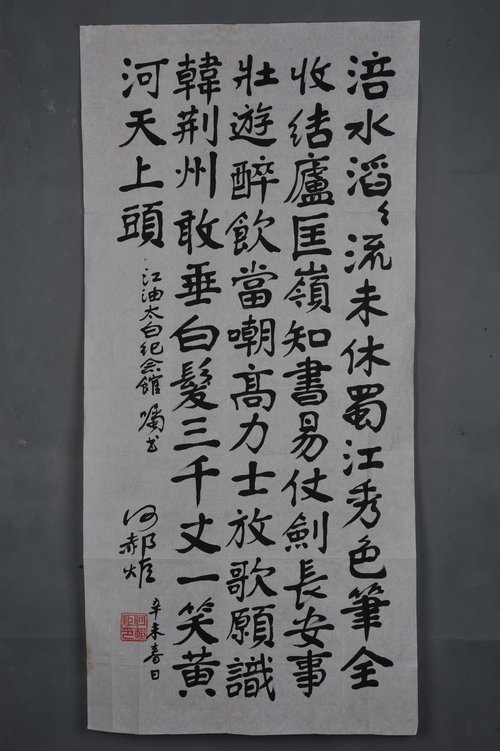 涪水滔々流未休蜀江秀色筆全
收结廬匡嶺知書易仗劍長安事
壯遊醉飲當嘲髙力士放歌願識
韓荆州敢垂白髮三千丈一笑黄
河天上頭
江油太白纪念館嘱书
何郝炬
辛未春日